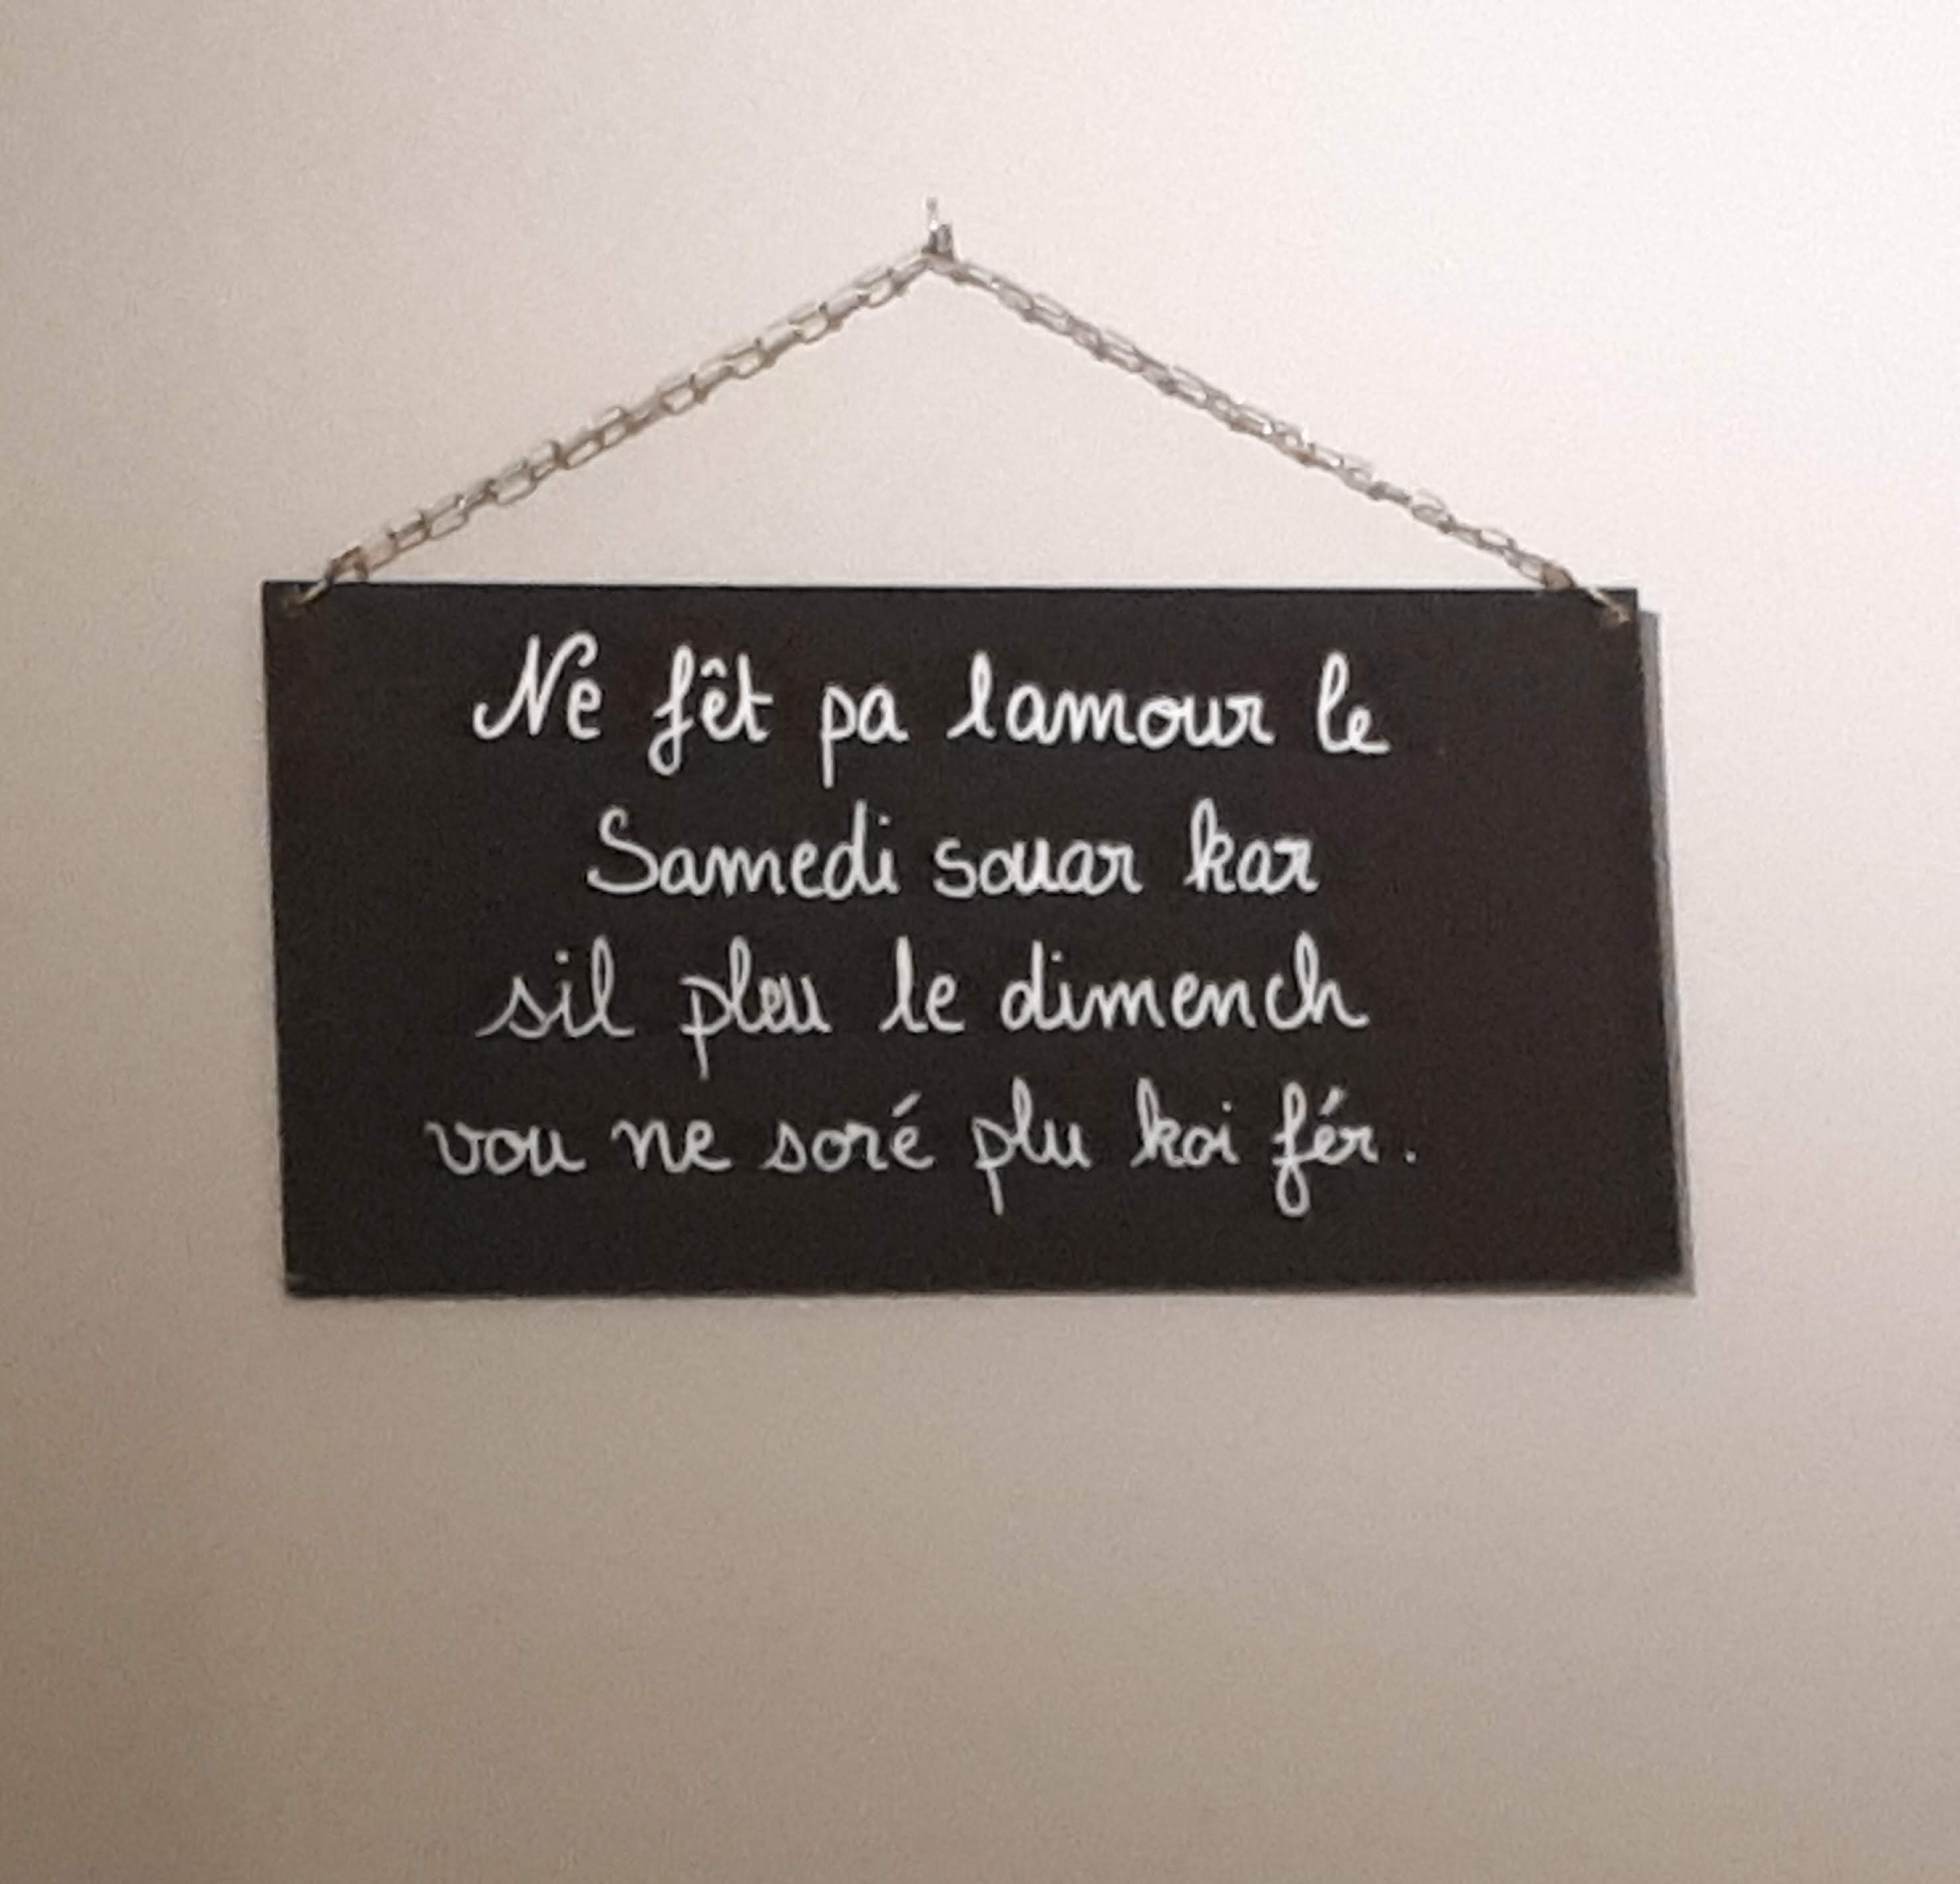 Ne fêt pa lamour le
Samedi souar kar
sil pleu le dimench
vou ne soré plu koi fér.